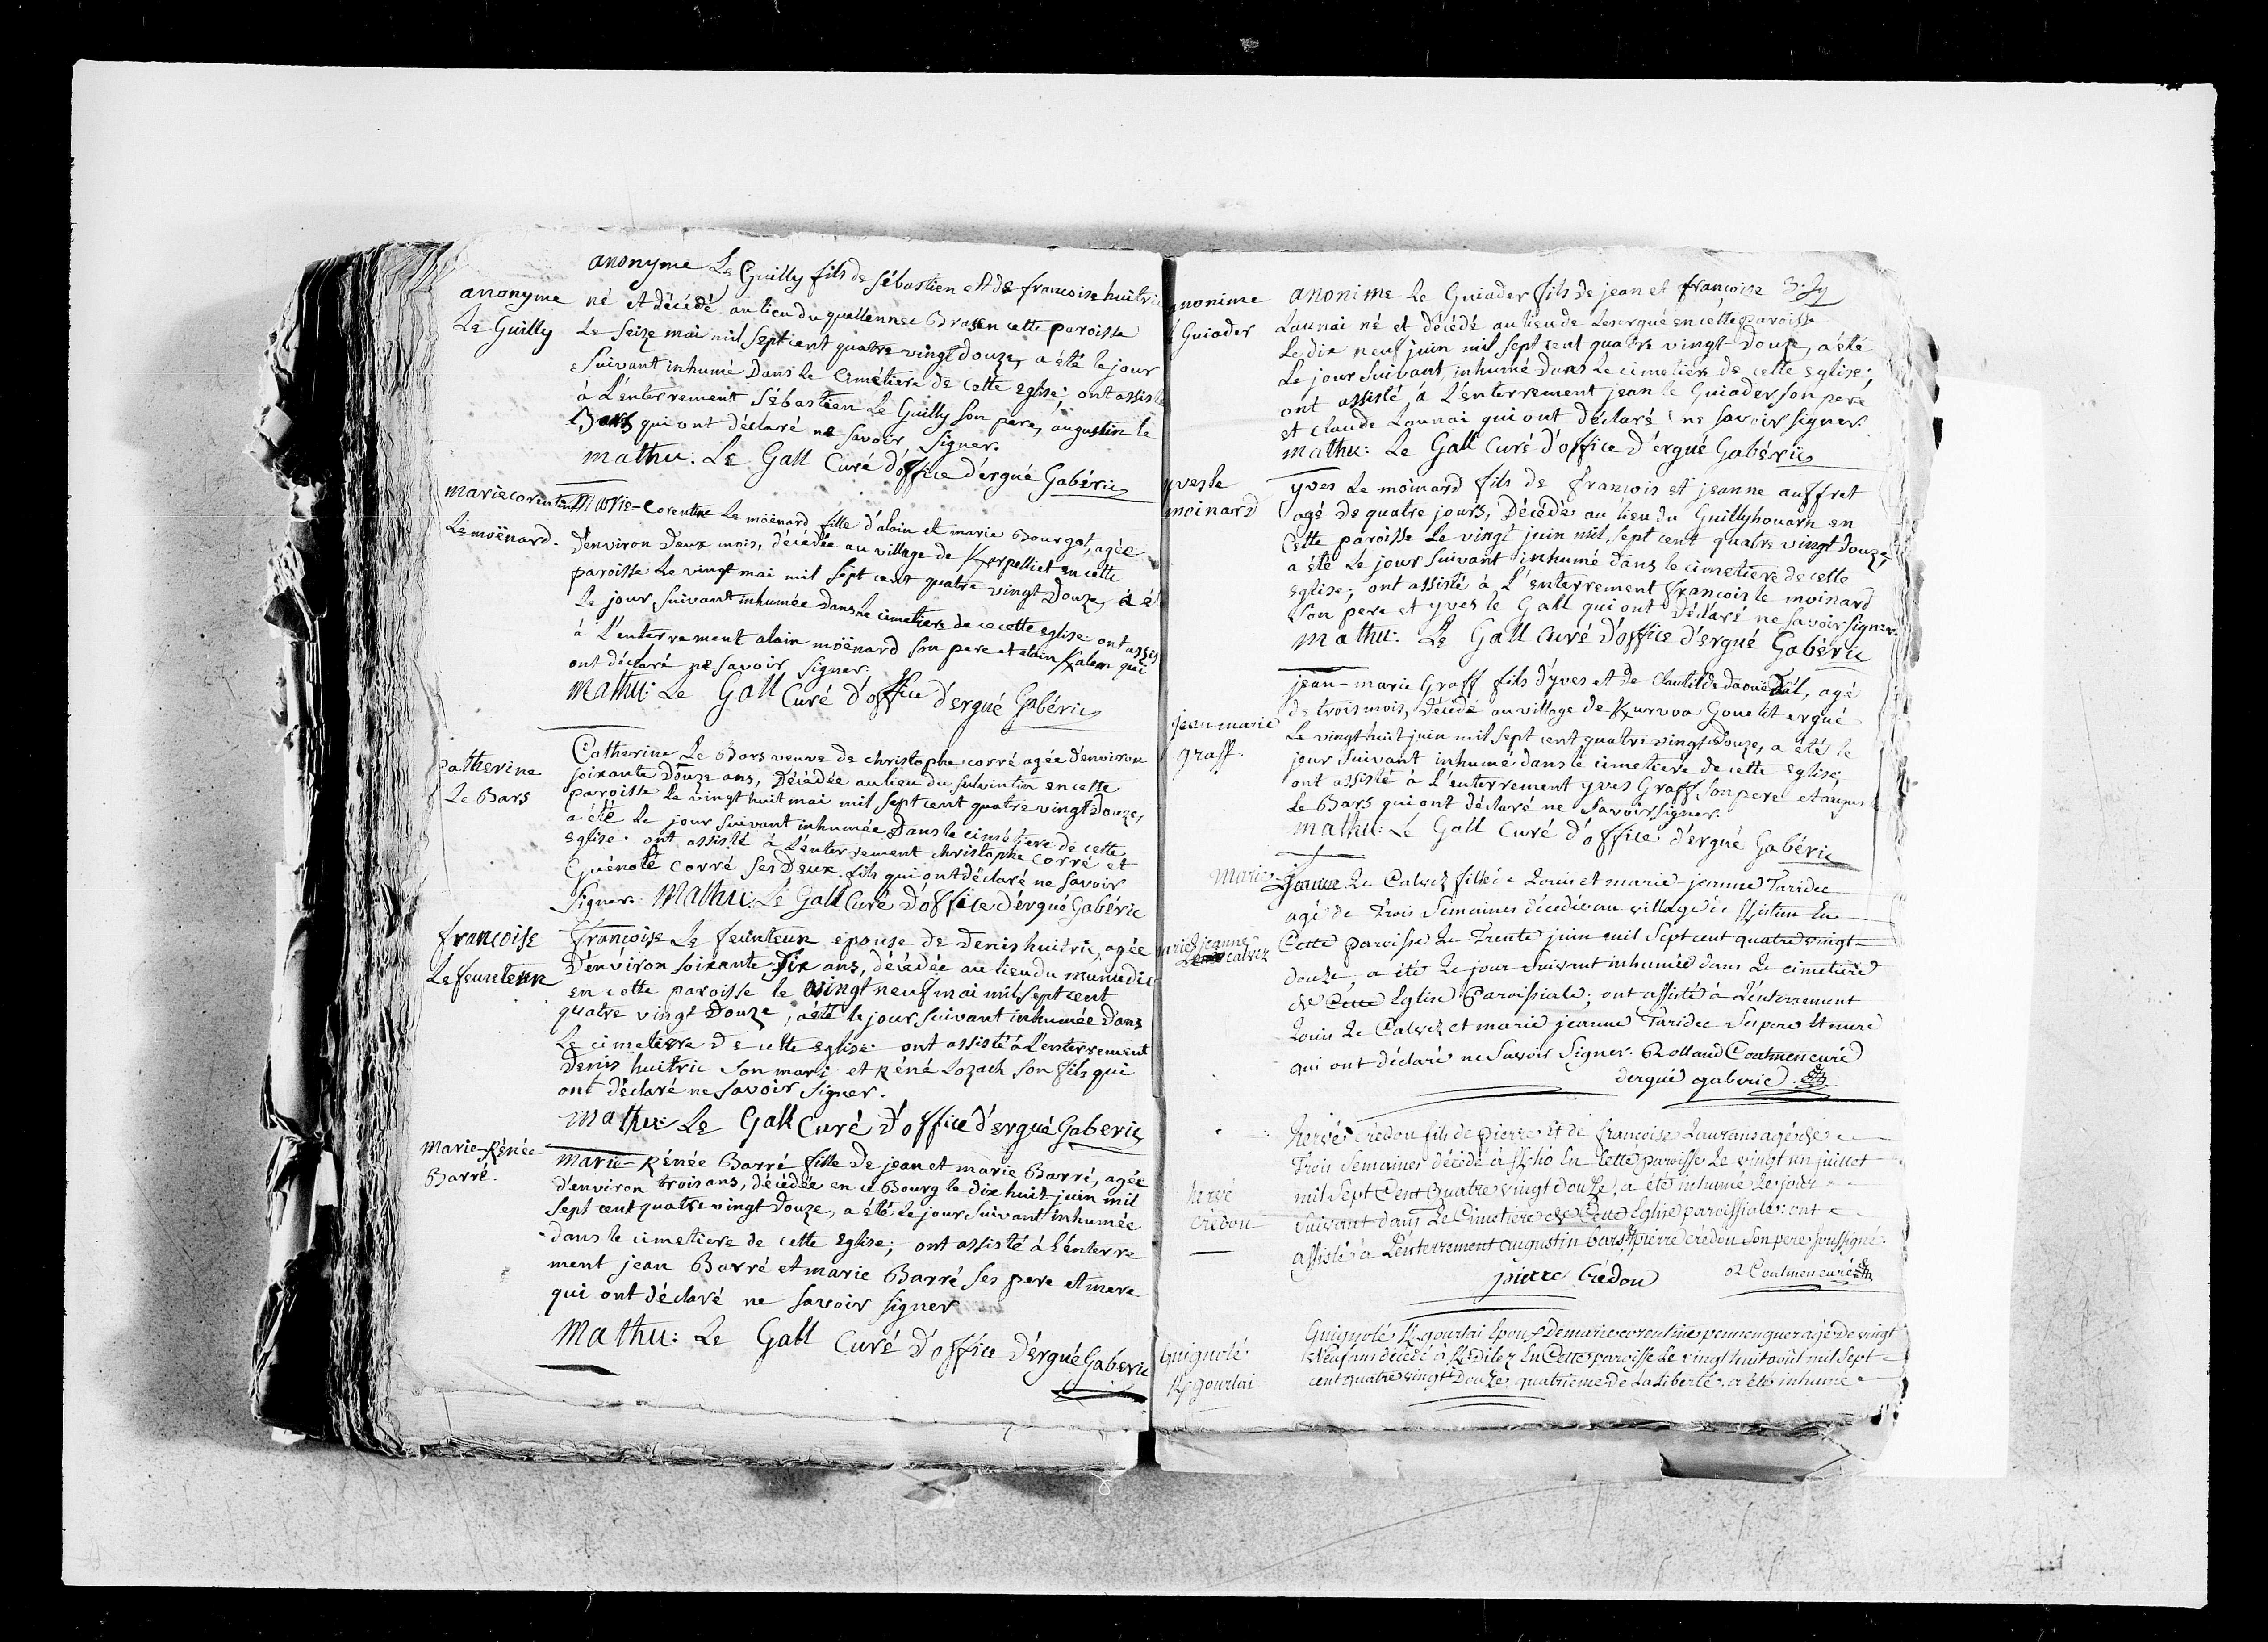 anonyme Le Guilly fils de sébastien et de francoise huitric
anonyme
Le Guilly
né et décédé au lieu du quellennec Bras en cette paroisse
Le seize mai mil sept cent quatre vingt douze, a été le jour
suivant inhumé dans le cimétiere de cette eglise; ont assisté
à L'enterrement sébastien Le Guilly son pere, augustin le
Bars qui ont déclaré ne savoir signer.
mathu: Le Gall Curé d'office d'ergué Gabéric
marie corentine
Le moënard.
Marie-Corentine Le moënard fille d'alain et marie Bourgot, agée
d'environ deux mois, décédée au village de Kerpelliet en cette
paroisse le vingt mai mil sept cent quatre vingt douze, a é
le jour suivant inhumée dans le cimetiere de ce cette eglise ont assis
à L'enterrement alain moënard son pere et alain Kalem qui
ont déclaré ne savoir signer.
Mathu: Le Gall Curé d'office d'ergué Gabéric
Catherine
Le Bars
Catherine Le Bars veuve de christophe corré agée d'environ
soixante douze ans, décédée au lieu du sulvintin en cette
paroisse le vingt huit mai mil sept cent quatre vingt douze,
a été le jour suivant inhumée dans le cimetiere de cette
eglise. ont assisté à L'enterrement christophe corré et
Guénolé corré ses deux fils qui ont déclaré ne savoir
signer. Mathu: Le Gall Curé d'office d'ergué Gabéric
francoise
Le feunteun
françoise Le feunteun epouse de denis huitric, agée
d'environ soixante dix ans, décédée au lieu du munudic
en cette paroisse le vingt neuf mai mil sept cent
quatre vingt douze, a été le jour suivant inhumée dans
Le cimetiere de cette eglise. ont assisté à L'enterrement
denis huitric son mari et Réné Lozach son fils qui
ont déclaré ne savoir signer.
mathu: Le Gall Curé d'office d'ergué Gaberic
Marie-Rénée
Barré.
marie-Rénée Barré fille de jean et marie Barré, agée
d'environ trois ans, décédée en ce Bourg le dix huit juin mil
sept cent quatre vingt douze, a été le jour suivant inhumée
dans le cimetiere de cette eglise; ont assisté à l'enterre
ment jean Barré et marie Barré ses pere et mere
qui ont déclaré ne savoir signer
Mathu: Le Gall Curé d'office d'ergué Gaberic
anonime
Guiader
anonime Le Guiader fils de jean et françoise
Launai né et décédé au lieu de Lesergué en cette paroisse
Le dix neuf juin mil sept cent quatre vingt douze, a été
Le jour suivant inhumé dans Le cimetiere de cette eglise;
ont assisté à L'enterrement jean le Guiader son pere
et claude Lounai qui ont déclaré ne savoir signer.
mathu: Le Gall Curé d'office d'ergué Gabéric
yves le
moinard
yves Le moinard fils de francois et jeanne auffret
agé de quatre jours, décédé au lieu du Guillyhouarn en
Cette paroisse Le vingt juin mil sept cent quatre vingt douze,
a été le jour suivant inhumé dans le cimetiere de cette
eglise; ont assisté à L'enterrement francois le moinard
son pere et yves le Gall qui ont déclaré ne savoir signer.
mathu: Le Gall Curé d'office d'ergué Gabéric
jean marie
graff.
jean-marie Graff fils d'yves et de Clautilde daouëdal, agé
de trois mois, décédé au village de Kurvoa Gouelit ergué
Le vingt huit juin mil sept cent quatre vingt douze, a été le
jour suivant inhumé dans le cimetiere de cette eglise;
ont assisté à L'enterrement yves Graff son pere et augus
Le Bars qui ont déclaré ne savoir signer.
mathu: Le Gall Curé d'office d'ergué Gabéric
marie jeanne
Le calvez
Marie-jeanne Le Calvez fille de Louis et marie-jeanne Taridec
agé de Trois semaines décédée au village de En
Cette paroisse Le Trente juin mil Sept cent quatre vingt
douze, a été Le jour suivant inhumée dans Le cimetiere
de Cette Eglise Paroissiale; ont assisté à L'enterrement
Louis Le Calvez et marie jeanne Taridec Ses pere et mere
qui ont déclaré ne savoir signer. Rolland Coatmen curé
dergué gaberic.
hervé
crédou
hervé crédou fils de pierre et de françoise Laurans agé de
Trois Semaines décédé à En Cette paroisse Le vingt un juillet
mil Sept Cent Quatre vingt douze, a été inhumé Le jour
Suivant dans Le Cimetiere de Cette Eglise paroissiale; ont
assisté à L'enterrement augustin bars et pierre credou son pere soussigné.
pierre Crédou R Coatmen curé
Guignolé
Kgourlai
Guignolé Kgourlai Epoux De marie corentine pennenguer agé de vingt
Neuf ans décédé à Kdilez En Cette paroisse Le vingt huit août mil Sept
cent quatre vingt Douze, quatrieme de La liberté. a été inhumé